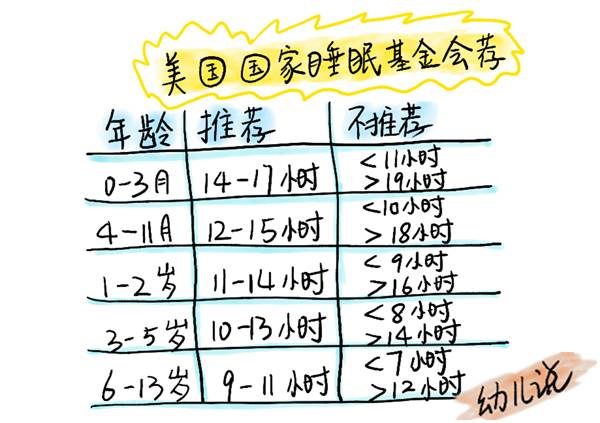 美国国家睡眠基金会荐
年龄 推荐 不推荐
0-3月 14-17小时 <11小时 >19小时
4-11月 12-15小时 <10小时 >18小时
1-2岁 11-14小时 <9小时 >16小时
3-5岁 10-13小时 <8小时 >14小时
6-13岁 9-11小时 <7小时 >12小时
幼儿说